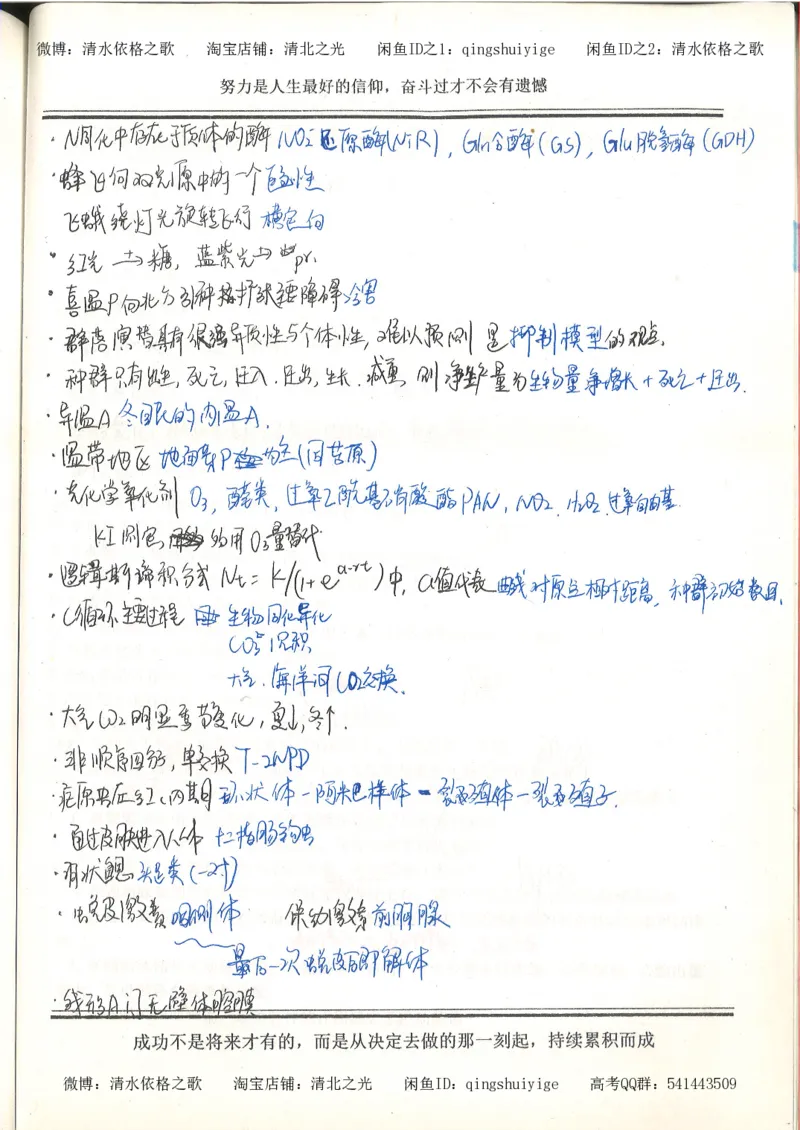 微博：清水依格之歌 淘宝店铺：清北之光 闲鱼ID之1：qingshuiyige 闲鱼ID之2：清水依格之歌
努力是人生最好的信仰，奋斗过才不会有遗憾
·N同化中存在于质体的酶 NO₂⁻还原酶(NiR)，Gln合酶(GS)，Glu脱氢酶(GDH)
·蜂飞向双光源中的一个 趋性
飞蛾绕灯光旋转飞行 横定向
·红光→糖，蓝紫光→pr.
·喜温P向北方引种和扩张主要障碍 冷害
·群落演替具有很强异质性与个体性，难以预测 是 抑制模型的观点.
·种群只有出生，死亡，迁入.迁出，生长.减重 则净生产量为生物量净增长+死亡+迁出.
·异温A 冬眠的内温A.
·温带地区 地面芽P为主(同苔原)
·光化学氧化剂 O₃，醛类，过氧乙酰基硝酸酯PAN，NO₂.H₂O₂.过氧自由基
KI测定 约用O₃量替代
·逻辑斯谛积分式 Nt=K/(1+e^(a-rt))中，a值代表 曲线对原点相对距离，种群初始数目.
·C循环主要过程 生物同化异化
CO₃²⁻沉积
大气.海洋间CO₂交换.
·大气CO₂明显季节变化，夏↓，冬↑.
·非顺序四分，单交换 T-2NPD
·疟原虫在红C内期 环状体-阿米巴样体-裂殖体-裂殖子.
·通过皮肤进入人体 十二指肠钩虫
·羽状鳃 头足类(一对)
·蜕皮激素 咽侧体 保幼激素 前胸腺
最后一次蜕皮后即解体
·线形A门无壁体腔膜
成功不是将来才有的，而是从决定去做的那一刻起，持续累积而成
微博：清水依格之歌 淘宝店铺：清北之光 闲鱼ID：qingshuiyige 高考QQ群：541443509